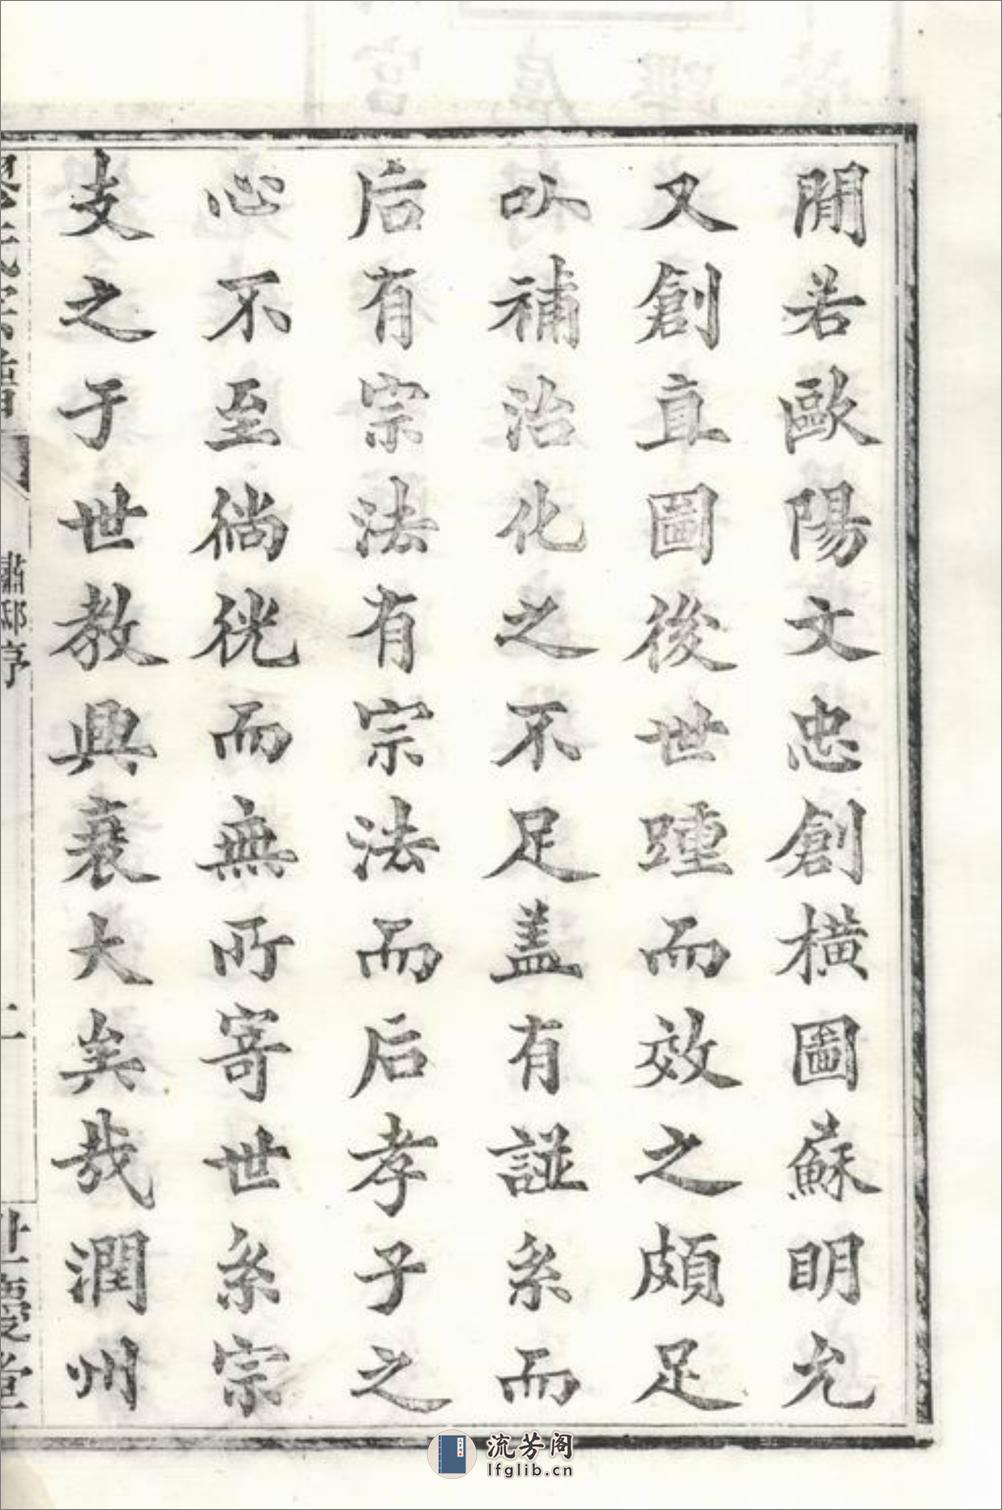 閒若歐陽文忠創橫圖蘇明允
又創直圖後世踵而效之頗足
以補治化之不足盖有謎系而
后有宗法有宗法而后孝子之
心不至徜恍而無所寄世系宗
支之于世教興衰大矣哉潤州
序
二
世慶堂
流芳阁
lfglib.cn